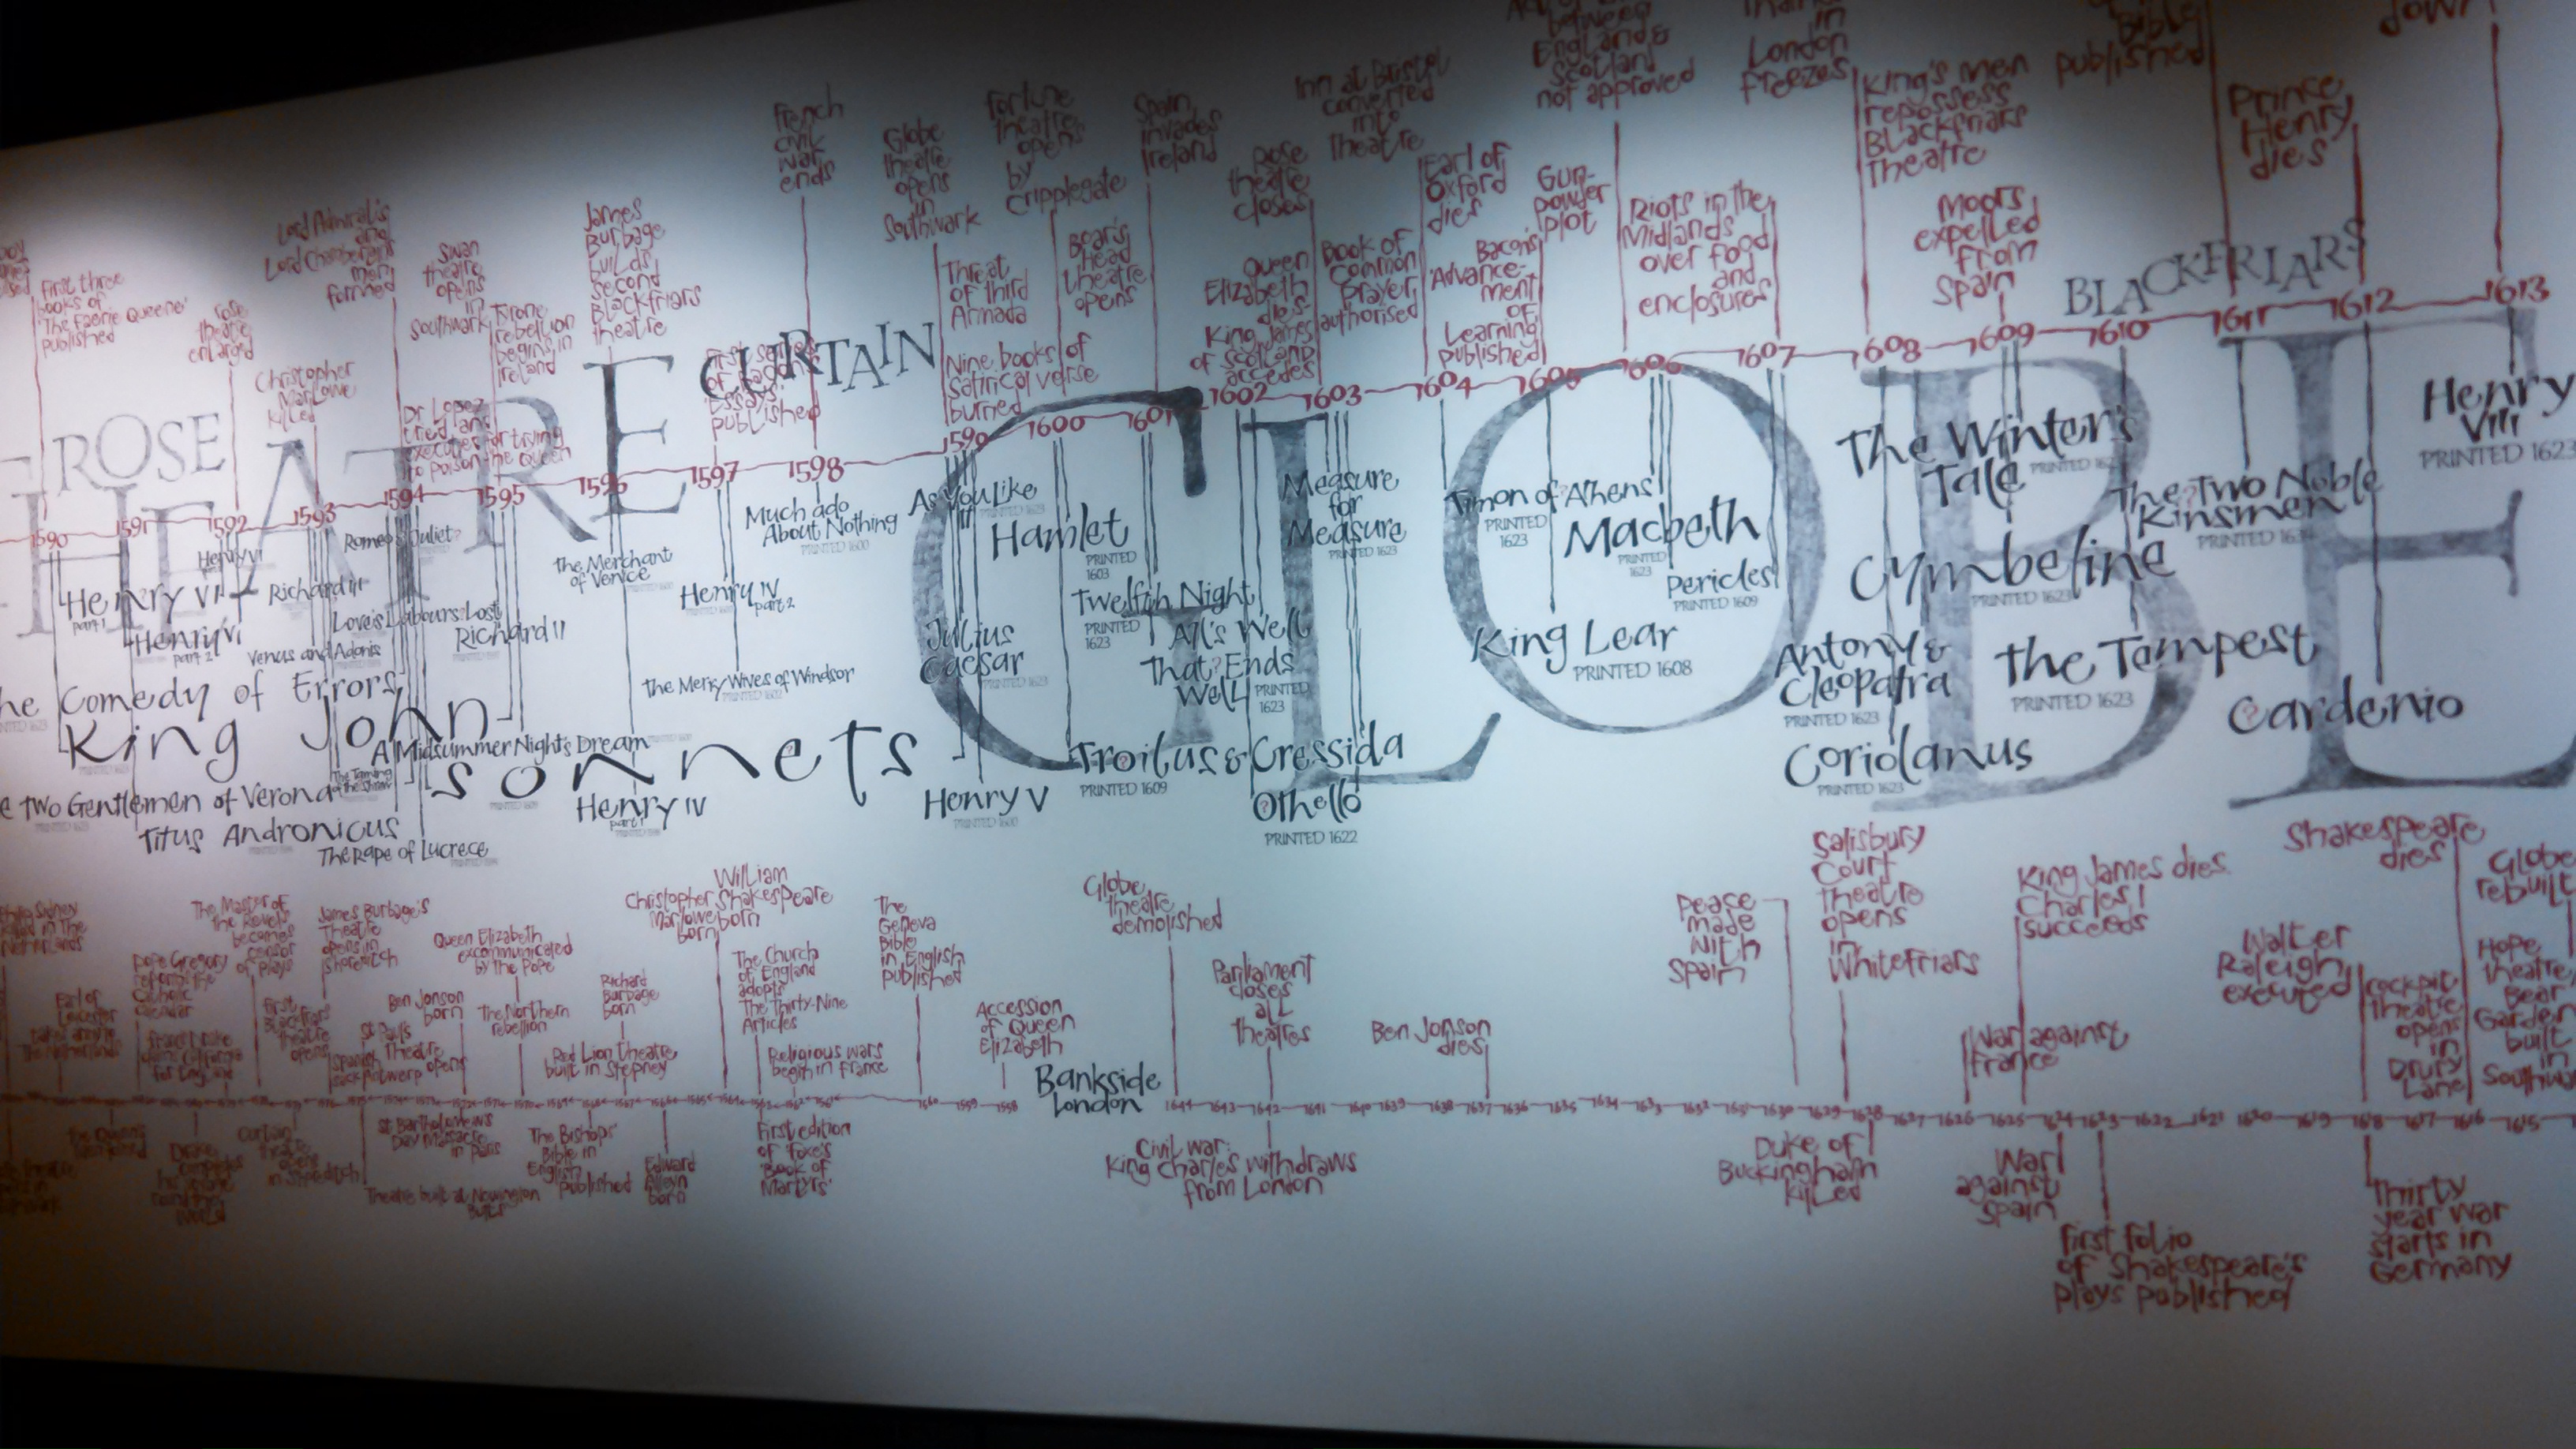 between
England &
Scotland
not approved
in
London
freezes
Bible
published
down
French
civil
war
ends
Globe
theatre
opens
in
Southwark
Fortune
theatre
opens
by
Cripplegate
Spain
invades
Ireland
Inn at Bristol
converted
into
theatre
King's men
repossess
Blackfriars
theatre
Prince
Henry
dies
Lord Admiral's
and
Lord Chamberlain's
men
formed
Swan
theatre
opens
in
Southwark
James
Burbage
builds
second
Blackfriars
theatre
Rose
theatre
closes
Earl of
Oxford
dies
Gun-
powder
plot
Riots in the
Midlands
over food
and
enclosures
Moors
expelled
from
Spain
First three
books of
'The Faerie Queene'
published
Rose
theatre
enlarged
Christopher
Marlowe
killed
Tyrone
rebellion
begins in
Ireland
Dr Lopez
tried and
executed for trying
to poison the Queen
published
Threat
of third
Armada
Boar's
Head
theatre
opens
Nine books of
satirical verse
burned
Queen
Elizabeth
dies
King James
of Scotland
accedes
Book of
Common
Prayer
authorised
Bacon's
'Advance-
ment
of
Learning'
published
ROSE
THEATRE
CURTAIN
GLOBE
BLACKFRIARS
1590 1591 1592 1593 1594 1595 1596 1597 1598 1599 1600 1601 1602 1603 1604 1605 1606 1607 1608 1609 1610 1611 1612 1613
Romeo & Juliet?
Henry VI
Henry VI
part 1
Richard III
Henry VI
part 2
Love's Labour's Lost
Richard II
Venus and Adonis
The Merchant
of Venice
Henry IV
part 2
Much ado
About Nothing
PRINTED 1600
The Merry Wives of Windsor
PRINTED 1602
The Comedy of Errors
King John
A Midsummer Night's Dream
The Taming
of the Shrew
Sonnets
Two Gentlemen of Verona
Titus Andronicus
The Rape of Lucrece
Henry IV
part 1
As You Like
it
PRINTED 1623
Hamlet
PRINTED
1603
Julius
Caesar
PRINTED 1623
Twelfth Night
PRINTED
1623
All's Well
That? Ends
Well
PRINTED
1623
Henry V
PRINTED 1600
Troilus & Cressida
PRINTED 1609
?Othello
PRINTED 1622
Measure
for
Measure
PRINTED 1623
Timon of Athens
PRINTED
1623
Macbeth
PRINTED
1623
Pericles
PRINTED 1609
King Lear
PRINTED 1608
The Winter's
Tale
PRINTED 1623
Cymbeline
PRINTED 1623
Antony &
Cleopatra
PRINTED 1623
Coriolanus
PRINTED 1623
The Tempest
PRINTED 1623
The Two Noble
Kinsmen
?Cardenio
Henry
VIII
PRINTED 1623
Philip Sidney
killed in The
Netherlands
Earl of
Leicester
The Master of
the Revels
becomes
censor
of plays
Pope Gregory
reforms the
Catholic
calendar
First
Blackfriars
theatre
opens
James Burbage's
Theatre
opens in
Shoreditch
St Paul's
Theatre
opens
Spanish
sack Antwerp
Ben Jonson
born
Queen Elizabeth
excommunicated
by the Pope
The Northern
rebellion
Red Lion theatre
built in Stepney
Richard
Burbage
born
Christopher
Marlowe
born
William
Shakespeare
born
The Church
of England
adopts
The Thirty-Nine
Articles
Religious wars
begin in France
The
Geneva
Bible
in English
published
Accession
of Queen
Elizabeth
Bankside
London
Globe
theatre
demolished
Parliament
closes
all
theatres
Ben Jonson
dies
Peace
made
with
Spain
Salisbury
Court
theatre
opens
in
Whitefriars
King James dies.
Charles I
succeeds
War against
France
Walter
Raleigh
executed
Shakespeare
dies
Cockpit
theatre
opens
in
Drury
Lane
Globe
rebuilt
Hope
theatre/
Bear
Garden
built
in
1560 1559 1558
1644 1643 1642 1641 1640 1639 1638 1637 1636 1635 1634 1633 1632 1631 1630 1629 1628 1627 1626 1625 1624 1623 1622 1621 1620 1619 1618 1617 1616 1615
St Bartholomew's
Day Massacre
in Paris
Theatre built at Newington
Butts
The Bishops'
Bible in
English
published
Edward
Alleyn
born
First edition
of 'Foxe's
Book of
Martyrs'
Civil war:
King Charles withdraws
from London
Duke of
Buckingham
killed
War
against
Spain
First folio
of Shakespeare's
plays published
Thirty
year war
starts in
Germany